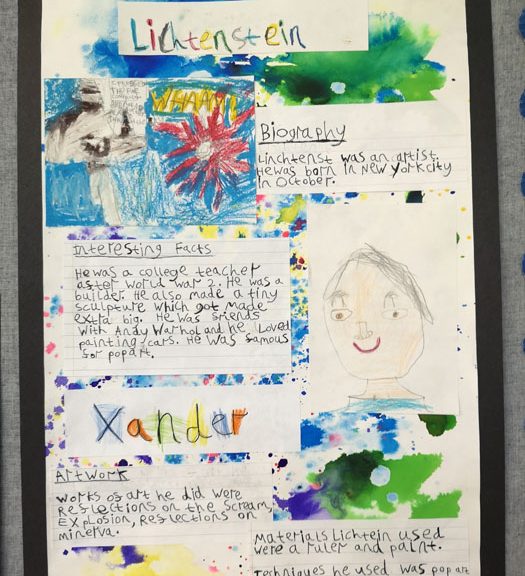 Lichtenstein
WHAAM!
Biography
Linchtenst was an artist.
He was born in New York city
in October.
Interesting Facts
He was a college teacher
aster world war 2. He was a
builder. He also made a tiny
sculpture which got made
extra big. He was sriends
with Andy Warhol and he Loved
painting cars. He was samous
sor pop art.
Xander
Artwork
Works os art he did were
Reslections on the Scream,
Explosion, Reslections on
minerva.
Materials Lichtein used
were a ruler and paint.
Techniques he used was pop art